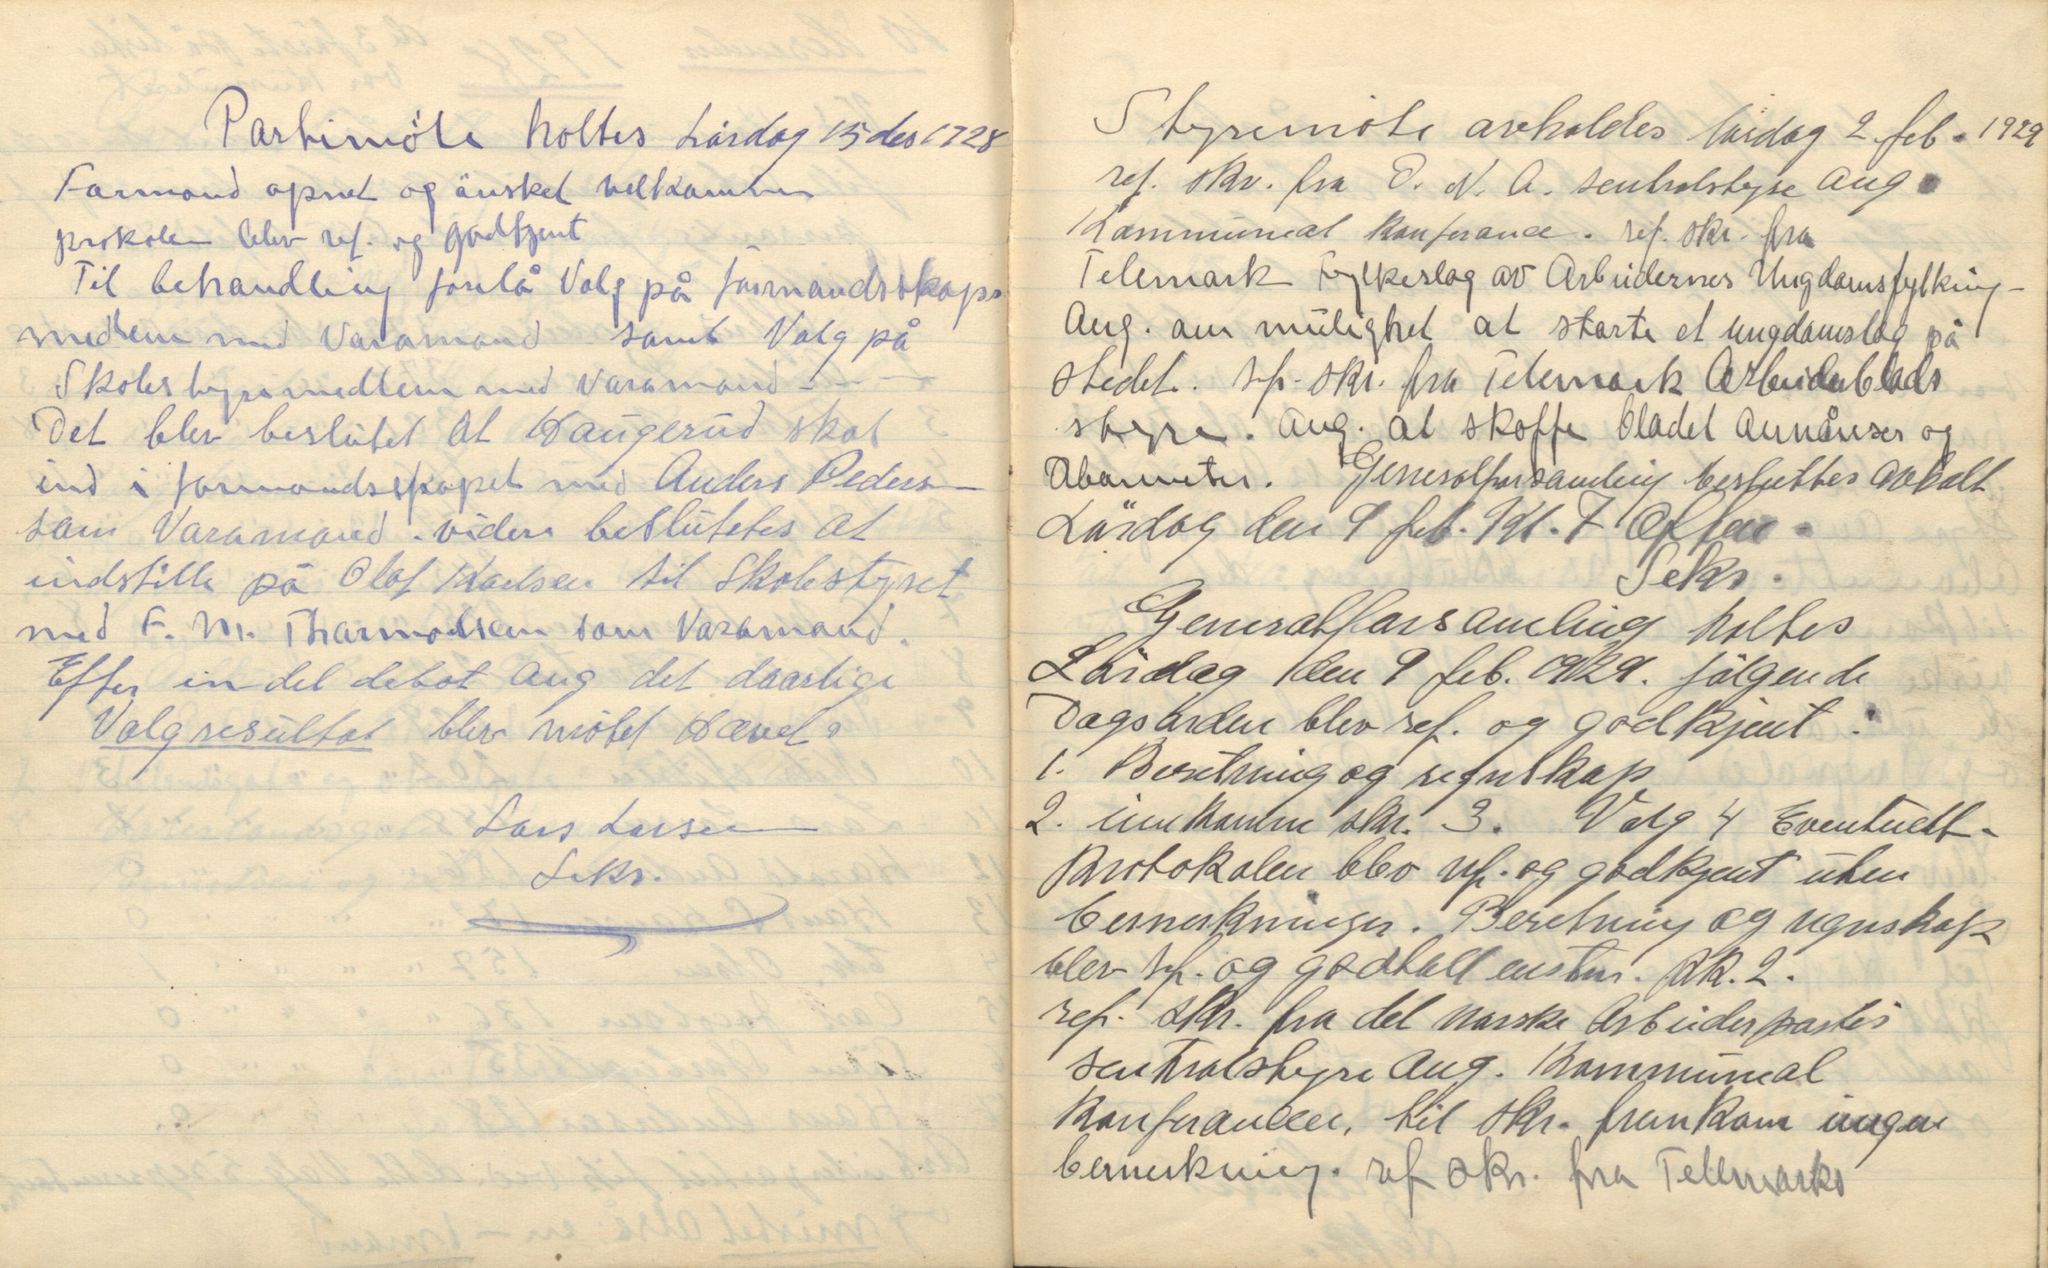 Partimöte holtes Lördag 15 des 1928
Formand opnet og önsket velkommen
prokolen blev ref. og godkjent
Til behandling forelå Valg på formandskaps
medlem med Varamand samt Valg på
Skolestyremedlem med varamand - - -
Det blev beslutet at Haugerud skal
ind i formandsskapet med Anders Peder-
sen Varamand. videre beslutetes at
indstille på Olaf Karlsen til Skolestyret
med F. M. Thormodsen som Varamand.
Efter en del debat ang det daarlige
Valgresultat blev mötet Hævet.
Lars Larsen
Sekr.
Styremöte avholdes lördag 2 feb. 1929
ref. skr. fra D. N. A. sentralstyre ang.
Kommunal konferance. ref. skr. fra
Telemark Fylkeslag av Arbeidernes Ungdomsfylking-
Ang. om mulighet at starte et ungdomslag på
stedet. ref. skr. fra Telemark Arbeiderblads
styre. Ang. at skaffe bladet Annånser og
Abonneter. Generalforsamling besluttes avholt
Lördag den 9 feb. Kl. 7 Aften.
Sekr.
Generalforsamling holtes
Lördag den 9 feb. 1929. følgende
Dagsorden blev ref. og godkjent :
1. Beretning og regnskap
2. innkomne skr. 3. Valg 4 Eventuelt.
Protokolen blev ref. og godkjent uten
bemerkninger. Beretning og regnskap
blev ref. og godtatt enstm. PK. 2.
ref. skr. fra det norske Arbeiderpartis
sentralstyre Ang. Kommunal
konferancen, til skr. fremkom ingen
bemerkning. ref skr. fra Telemarks